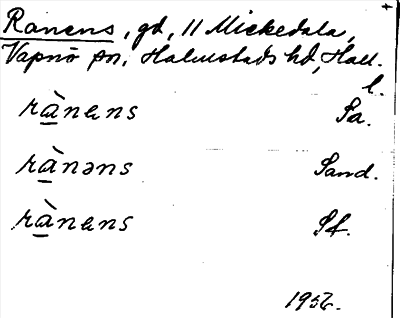 Ranens, gd, 11 Mickedala,
Vapnö sn, Halmstads hd, Hall.
l.
rànens Sa.
rànəns Sand.
rànens Sf.